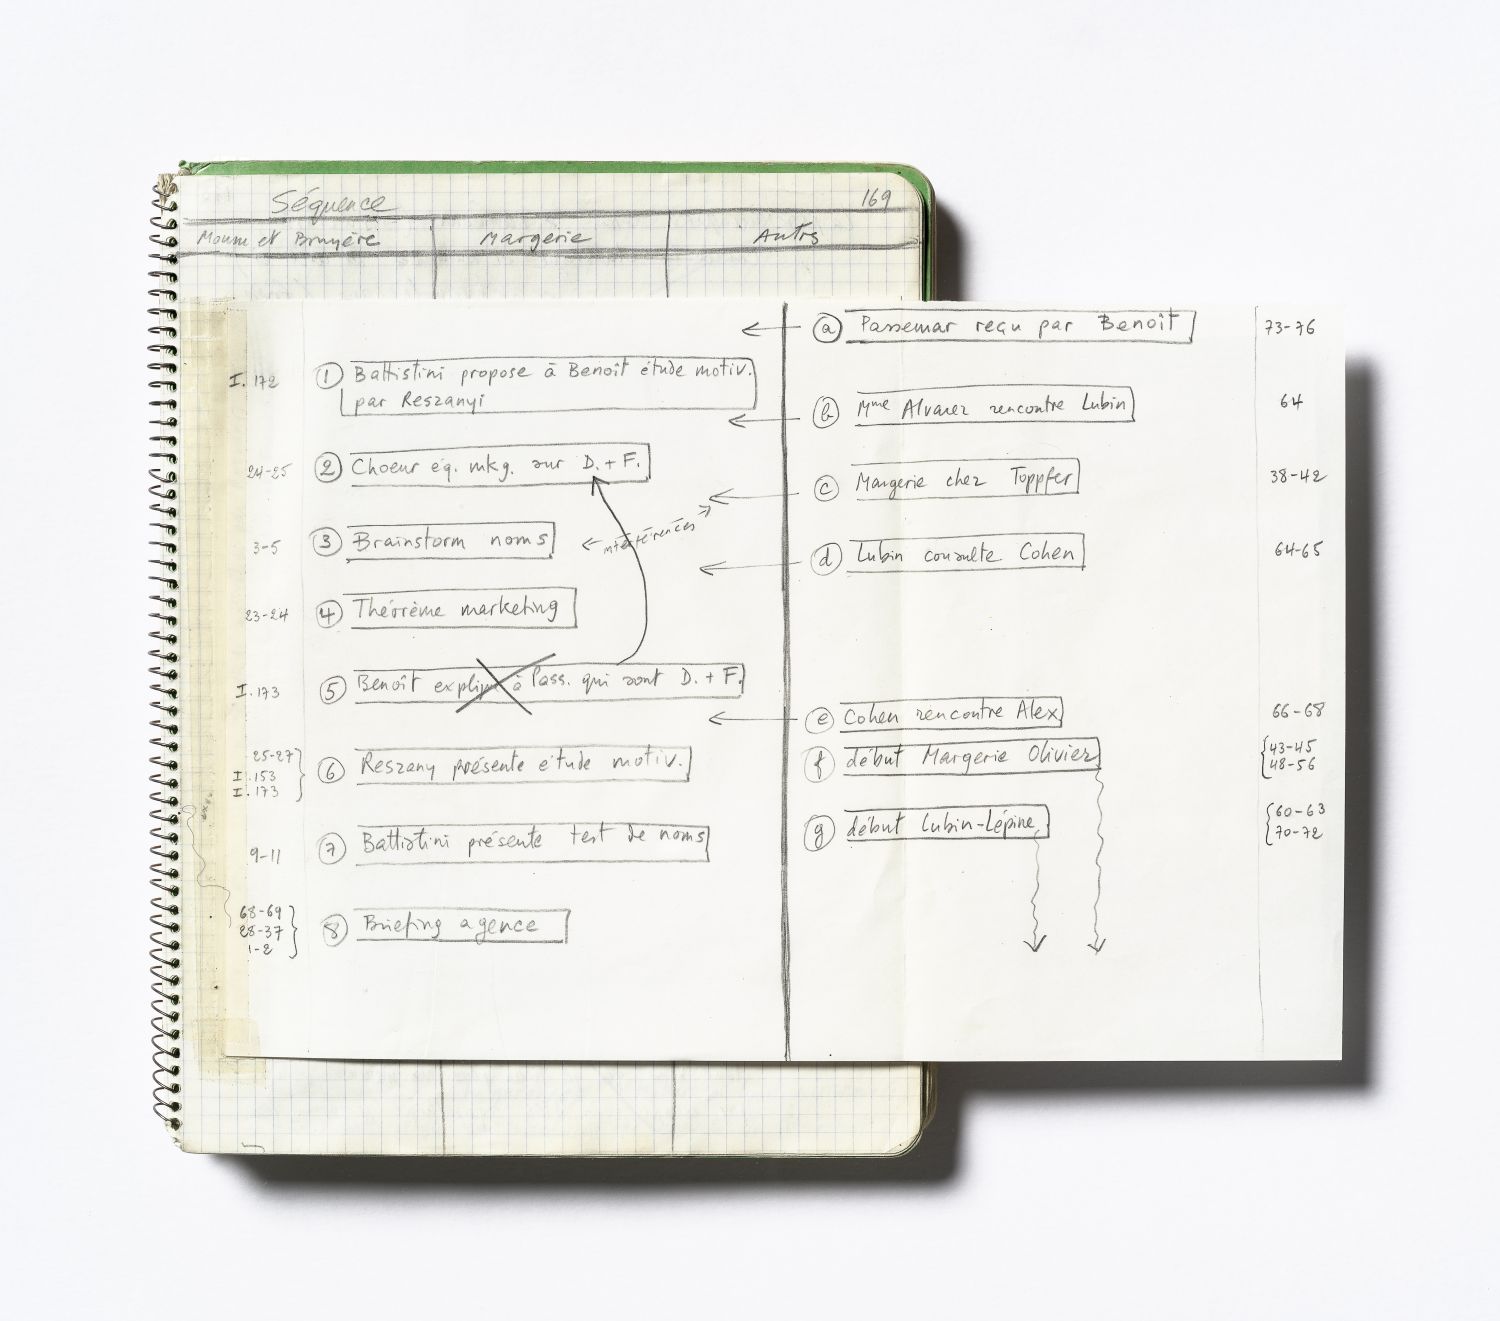 Séquence
169
Mousse et Bruyère
Margerie
Autres
I. 172
① Battistini propose à Benoît étude motiv.
par Reszanyi
24-25
② Choeur éq. mkg. sur D. + F.
3-5
③ Brainstorm noms
← interférences →
23-24
④ Théorème marketing
I. 173
⑤ Benoît explique à Pass. qui sont D. + F.
25-27
I. 153
I. 173
⑥ Reszany présente étude motiv.
9-11
⑦ Battistini présente test de noms
68-69
28-37
1-2
⑧ Briefing agence
ⓐ Passemar reçu par Benoît
73-76
ⓑ Mme Alvarez rencontre Lubin
64
ⓒ Margerie chez Toppfer
38-42
ⓓ Lubin consulte Cohen
64-65
ⓔ Cohen rencontre Alex
66-68
ⓕ début Margerie Olivier
43-45
48-56
ⓖ début Lubin-Lépine
60-63
70-72